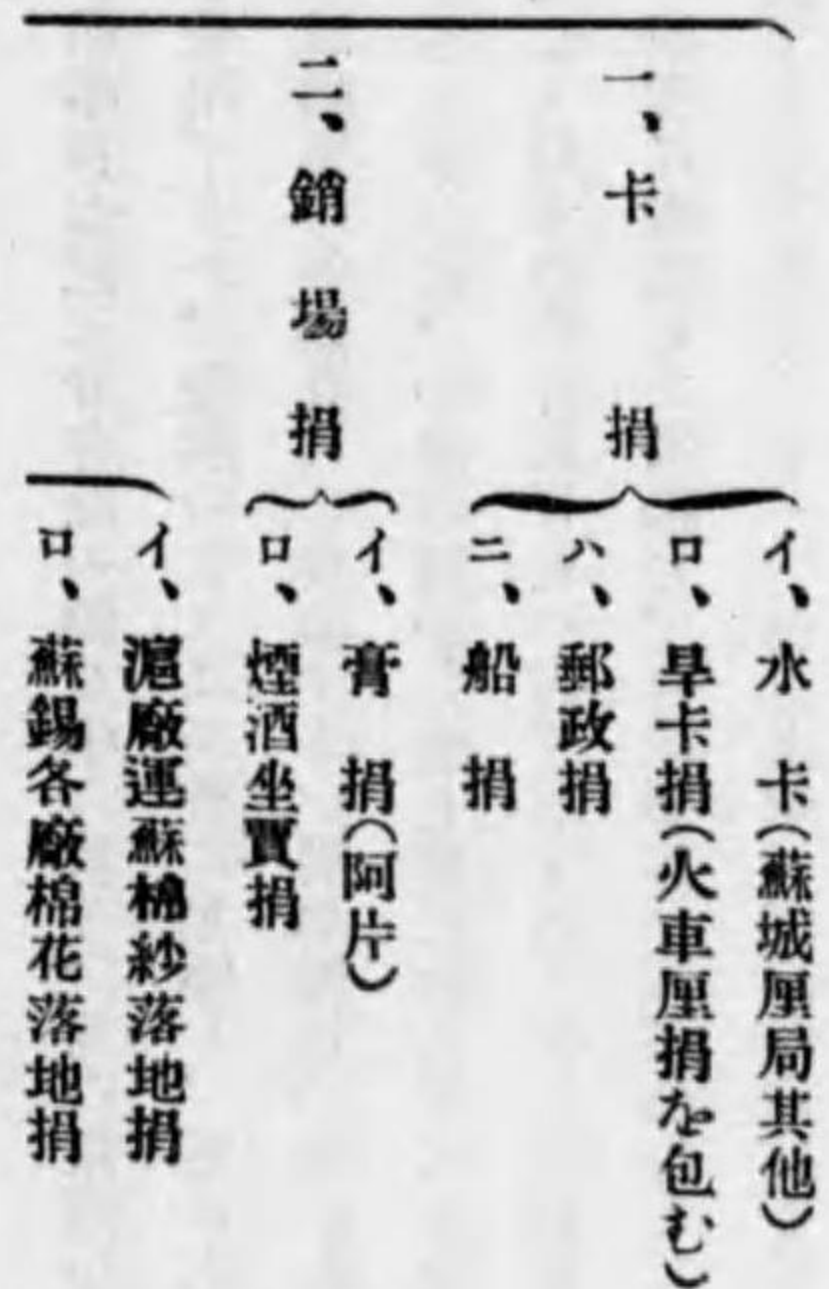 一、卡捐
イ、水卡(蘇城厘局其他)
ロ、旱卡捐(火車厘捐を包む)
ハ、郵政捐
ニ、船捐
二、銷場捐
イ、膏捐(阿片)
ロ、煙酒坐賈捐
イ、滬廠運蘇棉紗落地捐
ロ、蘇錫各廠棉花落地捐